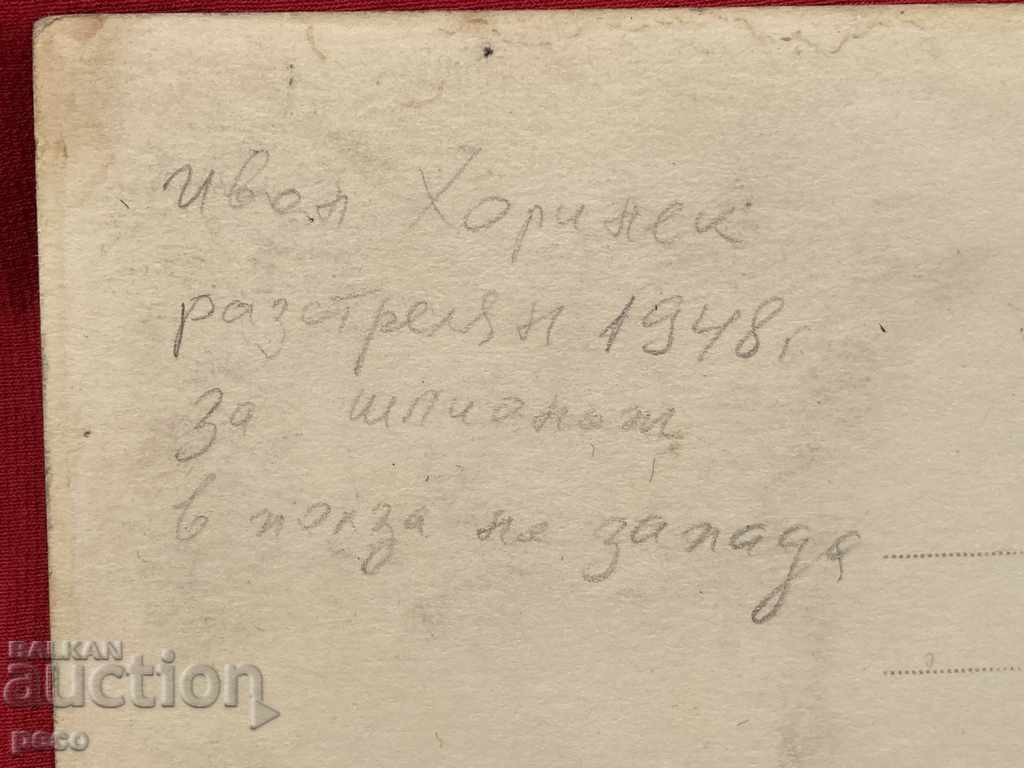 Иван Хоринек
разстрелян 1948г.
за шпионаж
в полза на запада
BALKAN
auction
peco